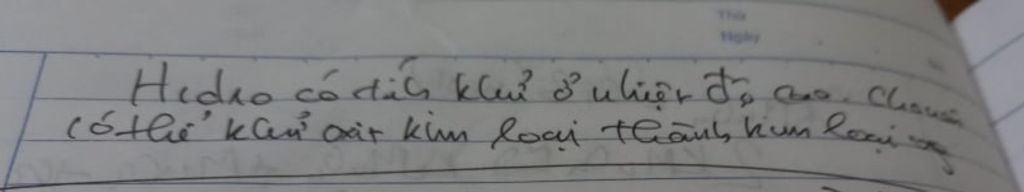 Thứ
Ngày
Hidro có tính khử ở nhiệt độ cao. Chúng
có thể khử oxit kim loại thành kim loại